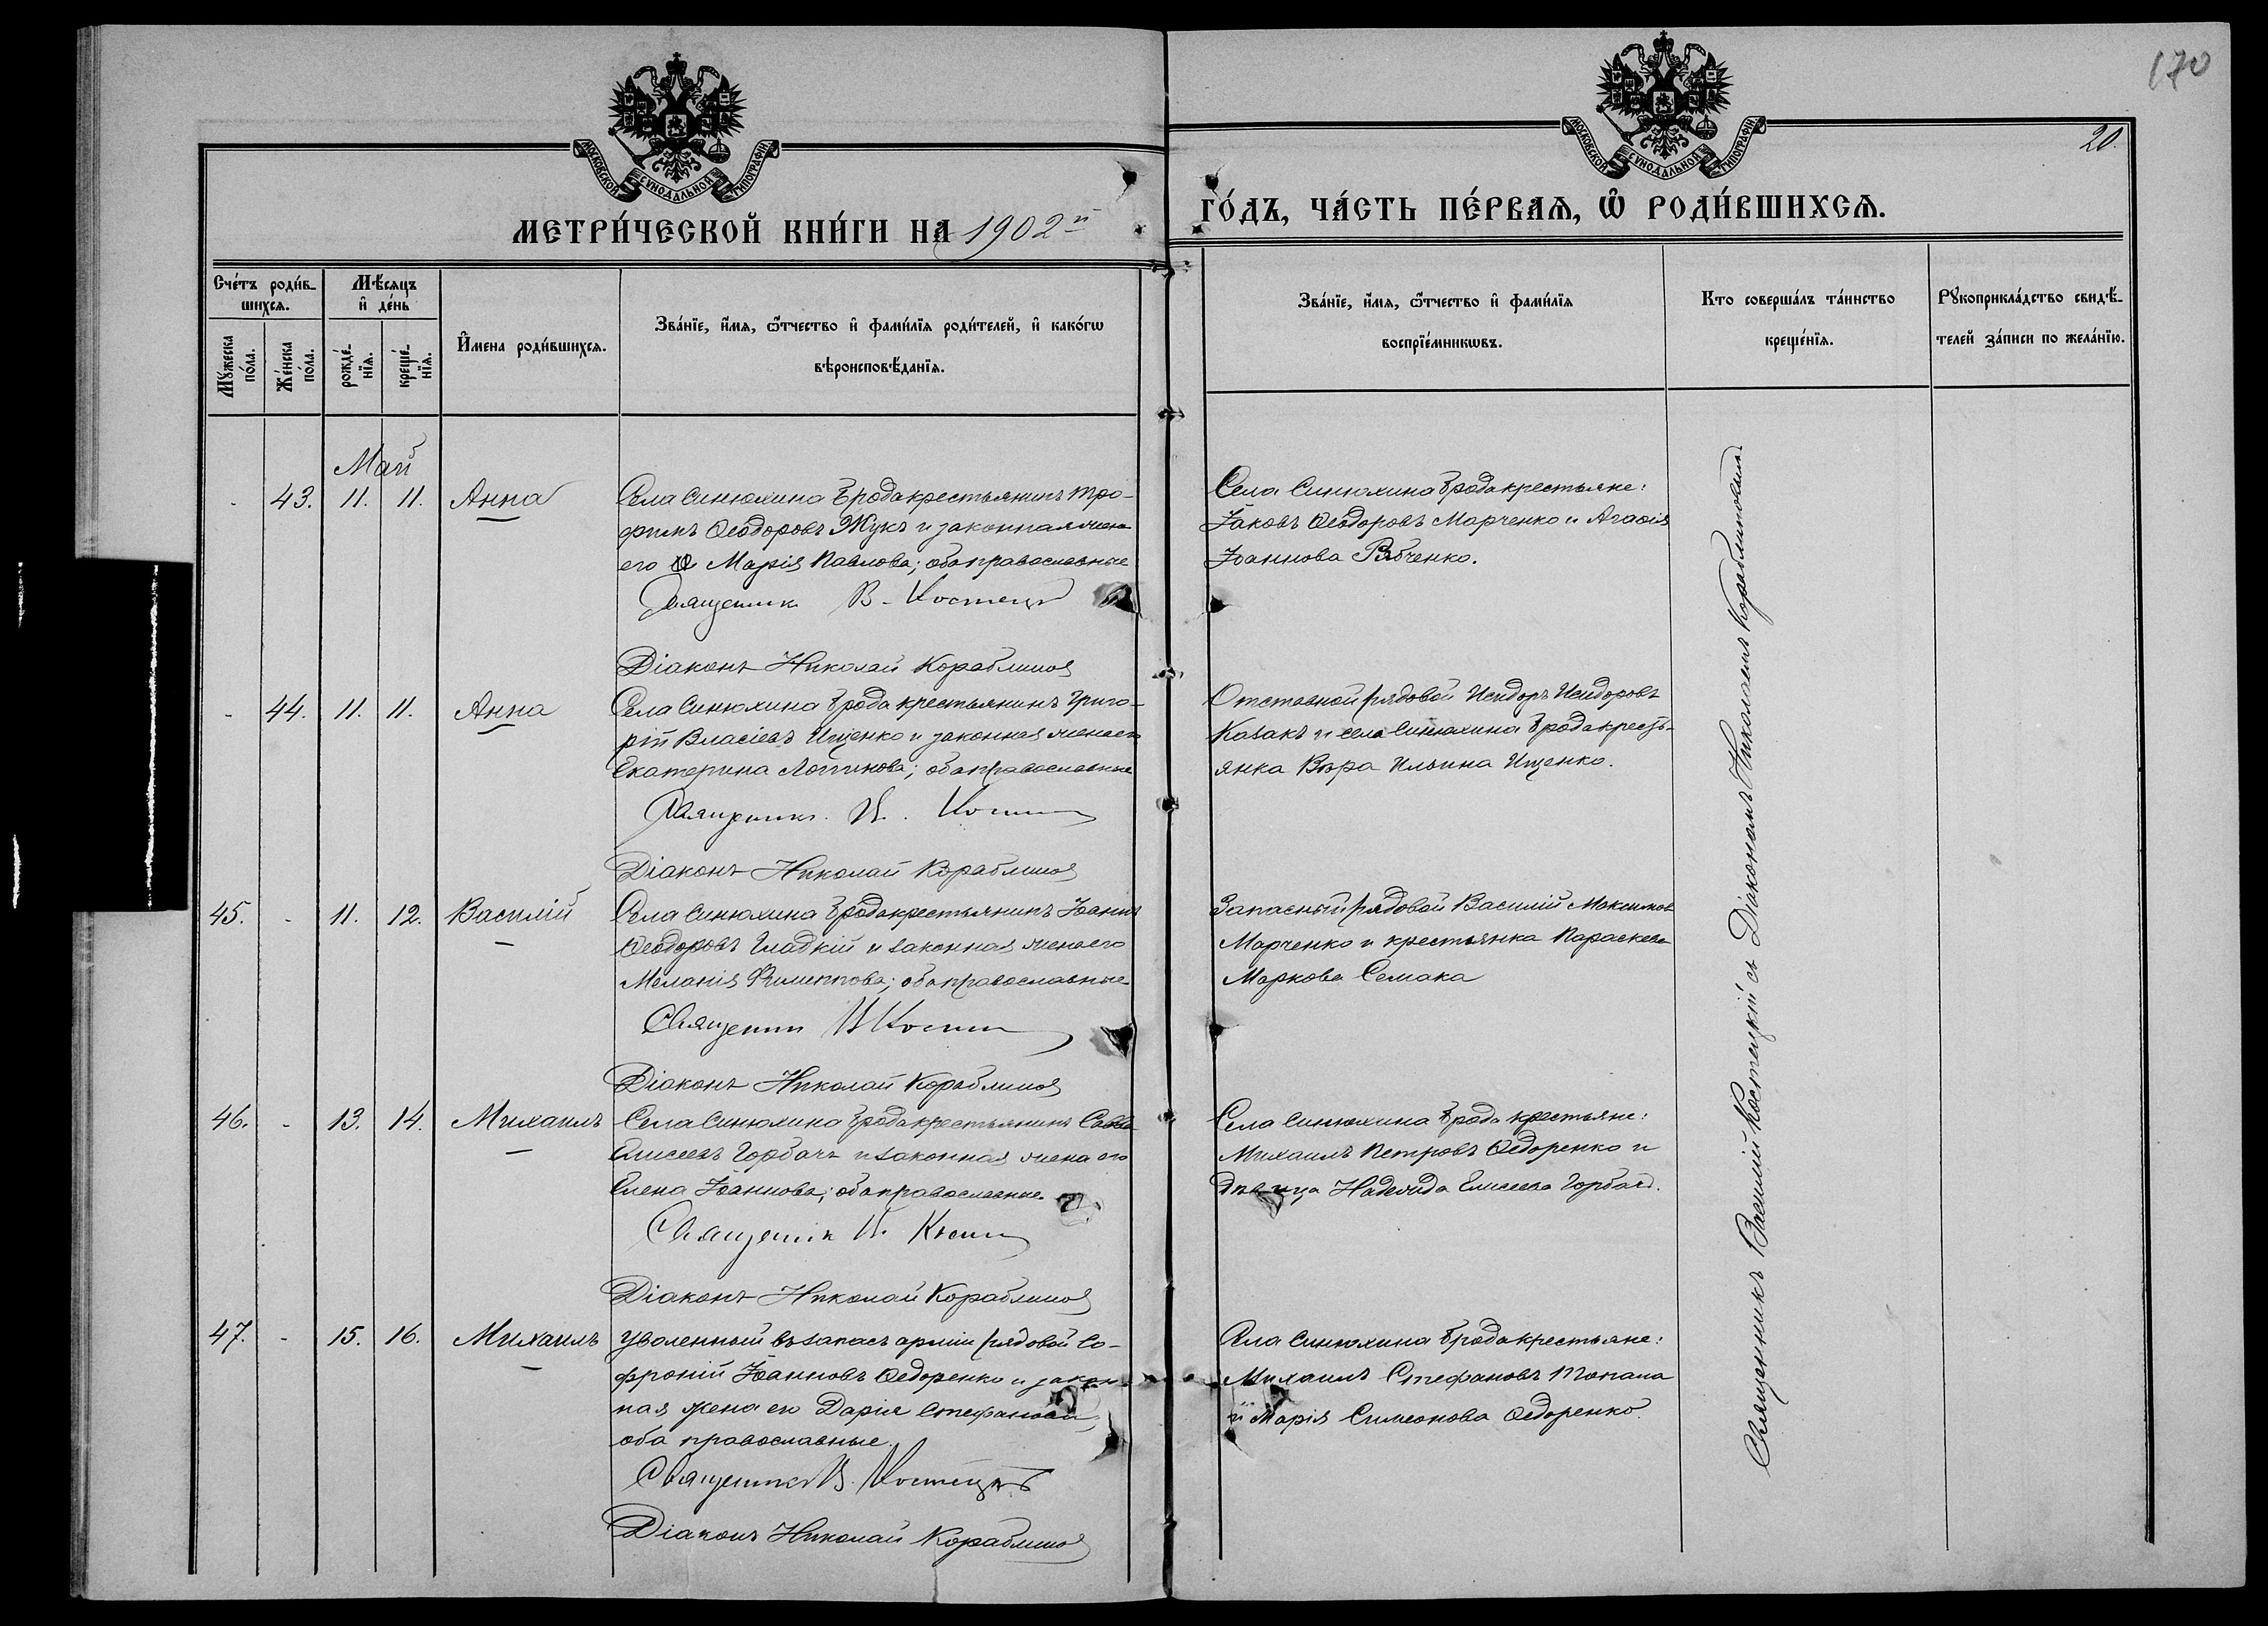 170
20.
МОСКОВСКОЙ СѴНОДАЛЬНОЙ ТИПОГРАФІИ
МОСКОВСКОЙ СѴНОДАЛЬНОЙ ТИПОГРАФІИ
МЕТРИ́ЧЕСКОЙ КНИ́ГИ НА 1902й
ГО́ДЪ, ЧА́СТЬ ПЕ́РВАѦ, Ѽ РОДИ́ВШИХСѦ.
Сче́тъ роди́в-
шихсѧ.
Мꙋ́жеска по́ла.
Же́нска по́ла.
Мѣ́сѧцъ
и҆ де́нь
рожде́-
нїѧ.
креще́-
нїѧ.
И҆́мена роди́вшихсѧ.
Зва́нїе, и҆́мѧ, ѻ҆́тчество и҆ фами́лїѧ роди́телей, и҆ како́гѡ
вѣроисповѣ́данїѧ.
Зва́нїе, и҆́мѧ, ѻ҆́тчество и҆ фами́лїѧ
воспрїе́мникѡвъ.
Кто соверша́лъ та́инство
креще́нїѧ.
Рꙋкоприкла́дство свидѣ́-
телей за́писи по жела́нїю.
Май
43. 11. 11. Анна
Села Синюхина Брода крестьянинъ Тро-
фимъ Ѳеодоровъ Жукъ и законная жена
его Марія Павлова; оба православные
Священник В. Костецк
Діаконъ Николай Кораблинов
Села Синюхина Брода крестьяне:
Іаковъ Ѳеодоровъ Марченко и Агаѳія
Іоаннова Рябченко.
44. 11. 11. Анна
Села Синюхина Брода крестьянинъ Григо-
рій Власіевъ Ищенко и законная жена его
Екатерина Логгинова; оба православные
Священник. В. Кост
Діаконъ Николай Кораблинов
Отставной рядовой Исидоръ Исидоровъ
Козакъ и села Синюхина Брода кресть-
янка Вѣра Ильина Ищенко.
45. - 11. 12. Василій
Села Синюхина Брода крестьянинъ Іоаннъ
Ѳеодоровъ Гладкій и законная жена его
Меланія Филиппова; оба православные
Священник В Кост
Діаконъ Николай Кораблинов
Запасный рядовой Василій Максимов
Марченко и крестьянка Параскева
Маркова Семака
46. - 13. 14. Михаилъ
Села Синюхина Брода крестьянинъ Савва
Елисеевъ Горбачъ и законная жена его
Елена Іоаннова; оба православные.
Священник В. Кост
Діаконъ Николай Кораблинов
Села Синюхина Брода крестьяне:
Михаилъ Петровъ Ѳедоренко и
дѣвица Надежда Елисеева Горбач.
47. - 15. 16. Михаилъ
Уволенный въ запасъ арміи рядовой Со-
фроній Іоанновъ Ѳедоренко и закон-
ная жена его Дарія Стефанова;
оба православные.
Священник В. Костецкій
Діаконъ Николай Кораблинов
Села Синюхина Брода крестьяне:
Михаилъ Стефановъ Топала
и Марія Симеонова Ѳедоренко.
Священникъ Василій Костецкій съ Діакономъ Николаемъ Кораблиновымъ.